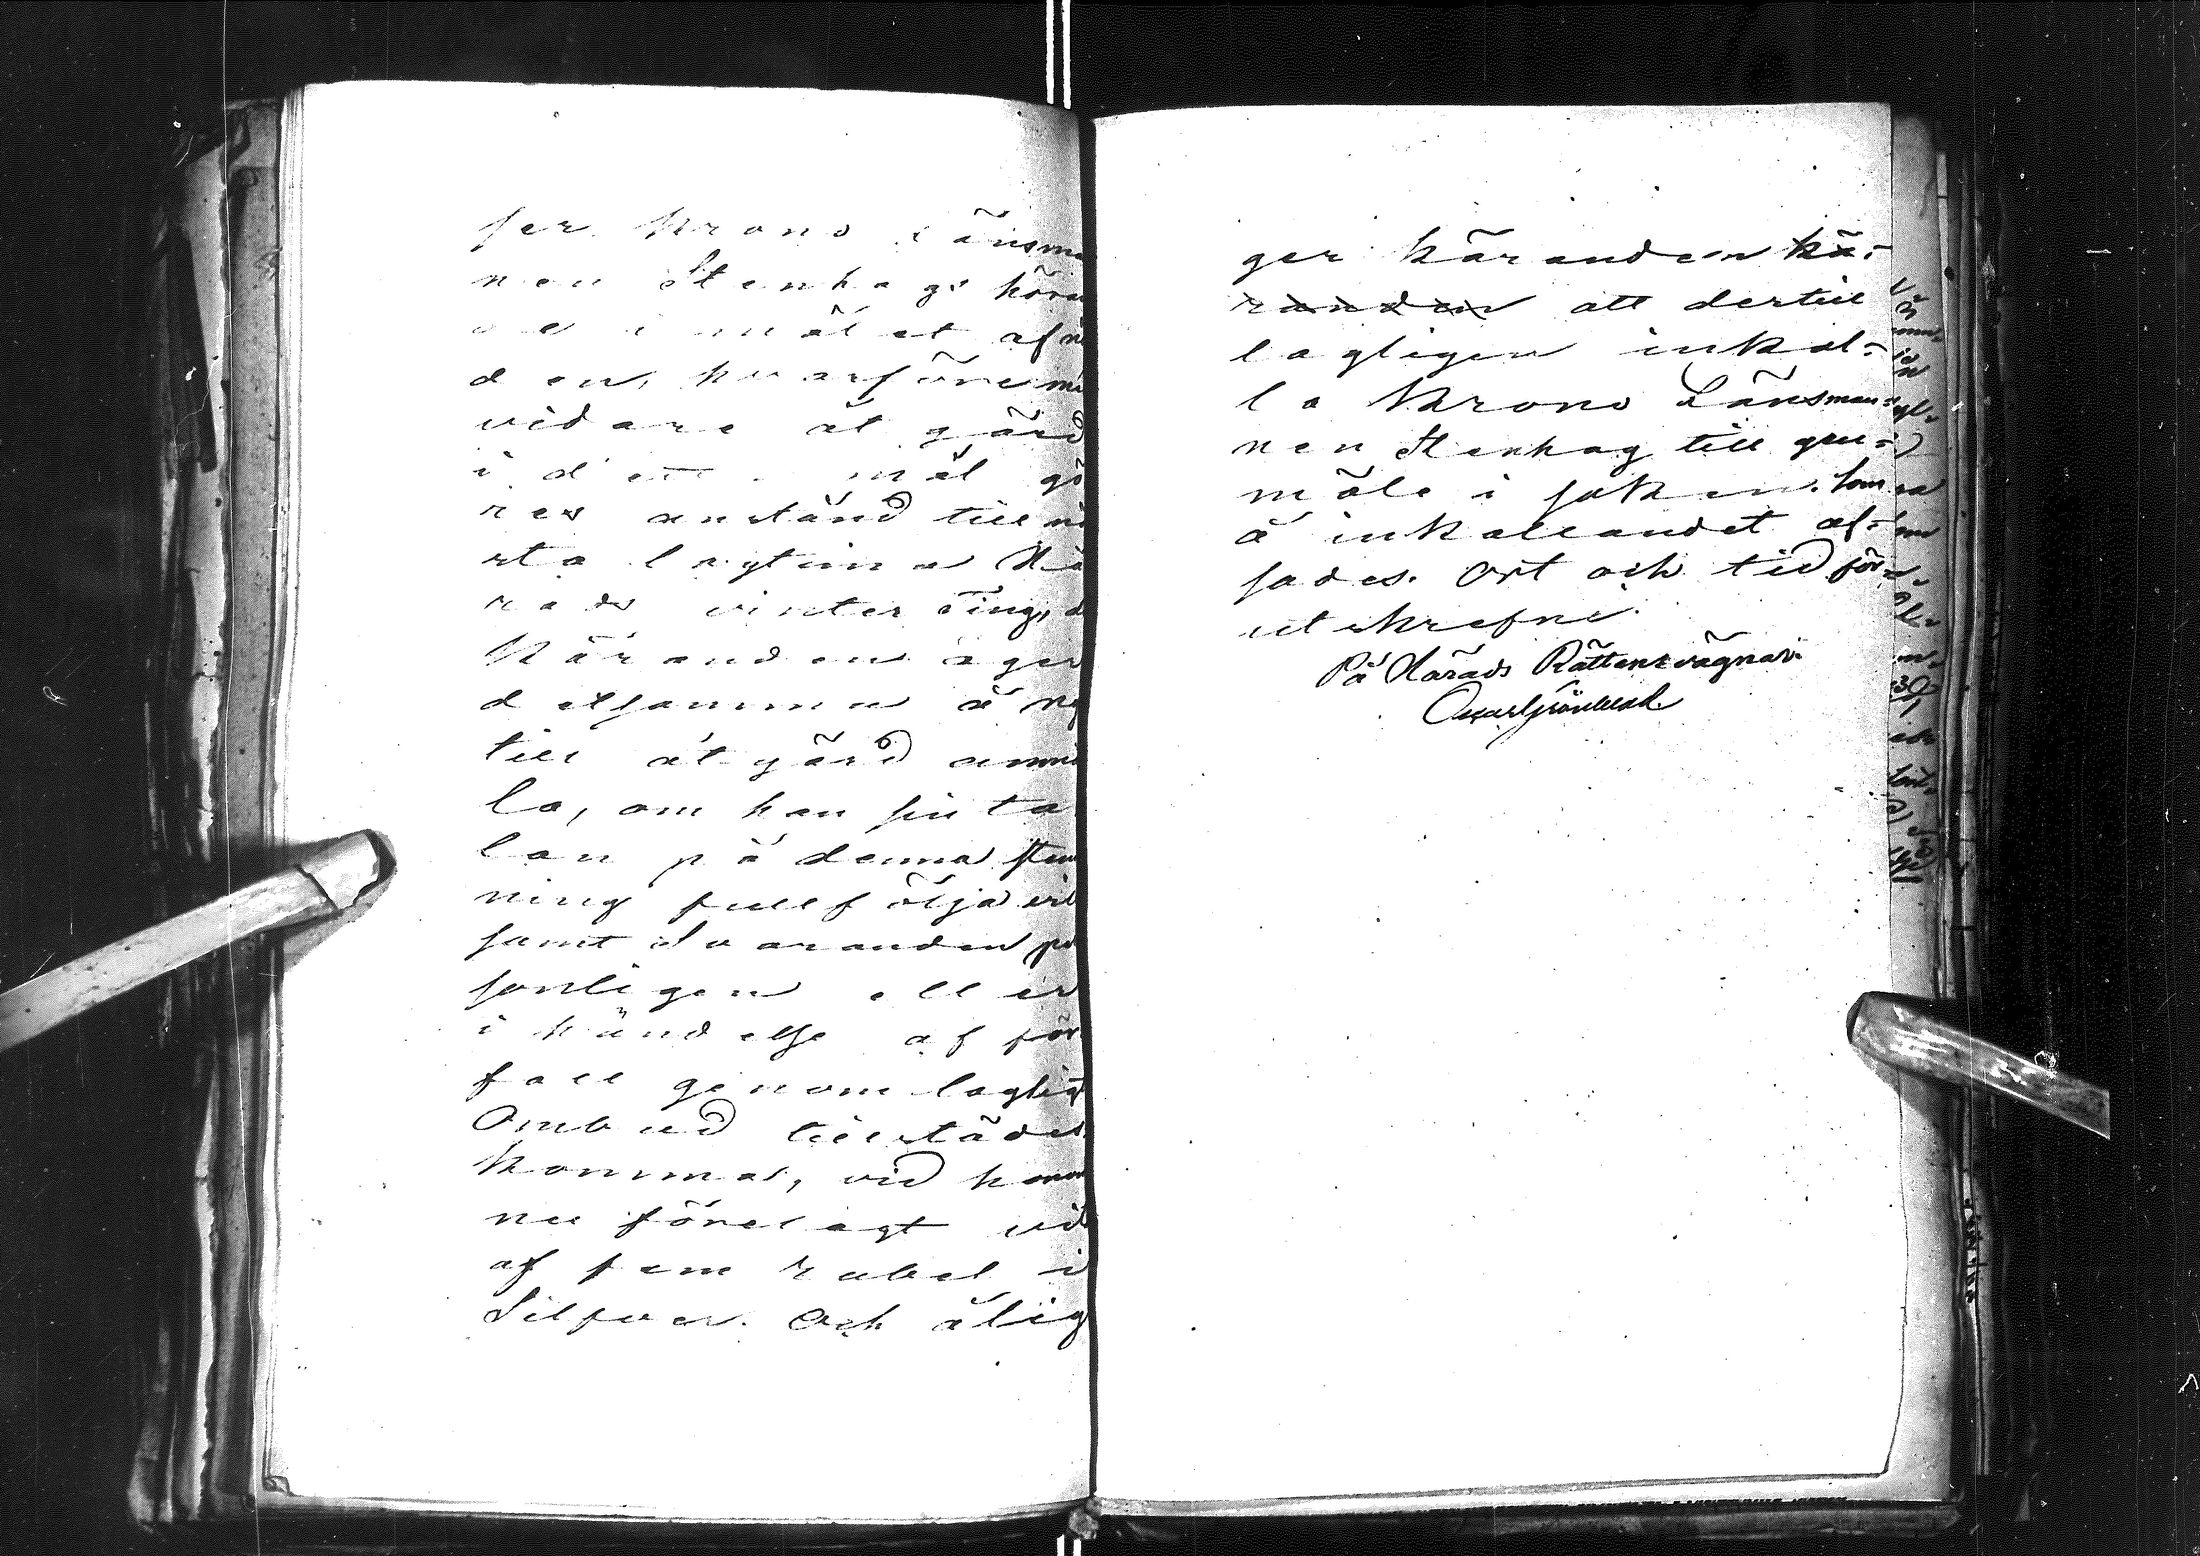 ser Krono Länsma
nen Stenhags höra
de i målet af n
den, hvarföre me
vidare åt gärd
i dett mål gö
res anstånd till nä
sta lagtima Hä
rads vinter ting, d
Käranden äger
detsamma å ny
till åtgärd anmä
la, om han sin ta
lan på denna stäm
ning fullfölja vil
samt Svaranden per
sonligen eller
i händelse af för
fall genom lagligt
Ombud tillstädes
komma, vid honom
nu förelagt vite
af fem rubel i
Silfver. Och ålig
ger käranden kä-
randen att dertill
lagligen inkal-
la Krono Länsman-
nen Stenhag till gen-
mäle i saken. Som
å inkallandet af-
sades. Ort och tid för-
utskrefne.
På Härads Rättens vägnar: